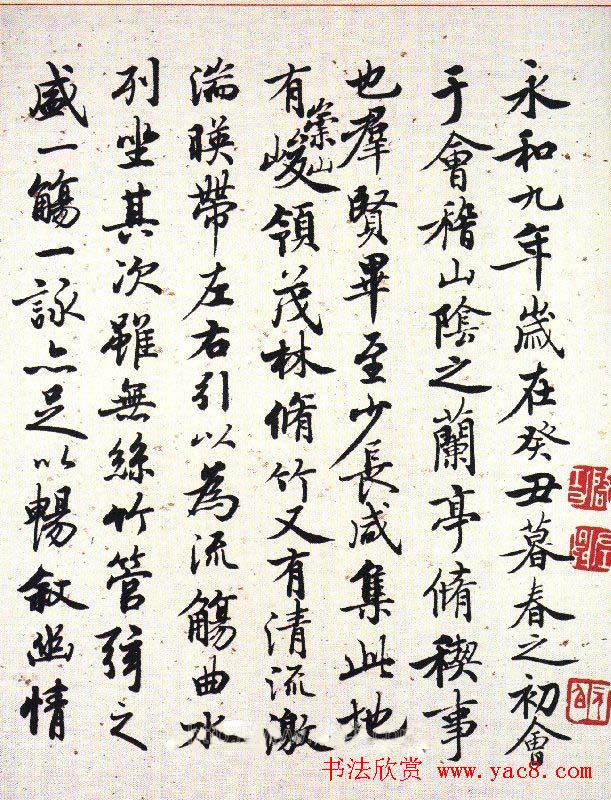 永和九年歲在癸丑暮春之初會
于會稽山陰之蘭亭脩稧事
也羣賢畢至少長咸集此地
有崇山峻領茂林脩竹又有清流激
湍暎帶左右引以為流觴曲水
列坐其次雖無絲竹管弦之
盛一觴一詠亦足以暢敘幽情
书法欣赏 www.yac8.com